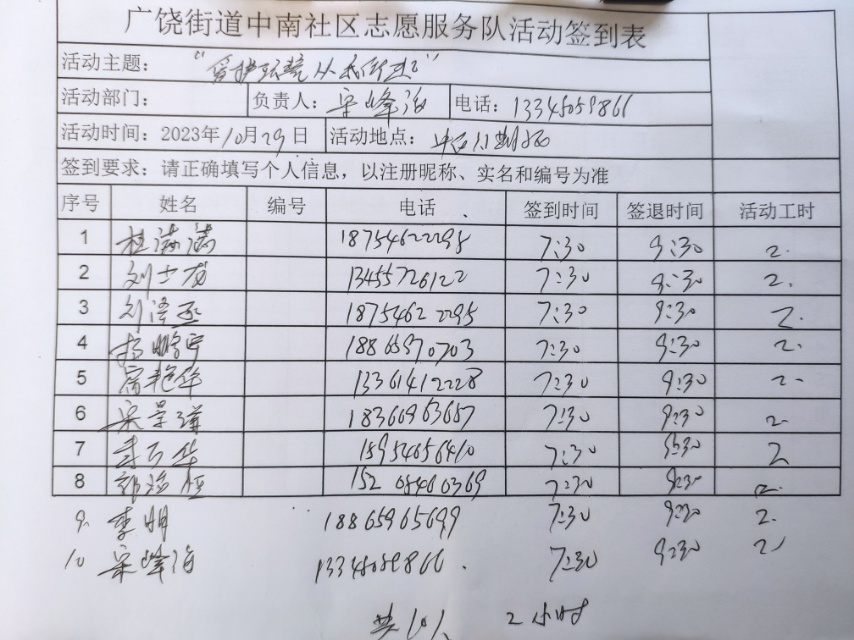 广饶街道中南社区志愿服务队活动签到表
活动主题：“爱护环境从我做起”
活动部门： 负责人：宋峰海 电话：13345059866
活动时间：2023年10月29日 活动地点：
签到要求：请正确填写个人信息，以注册昵称、实名和编号为准
序号 姓名 编号 电话 签到时间 签退时间 活动工时
1 桂满满 18754622295 7:30 9:30 2.
2 刘士友 13455726122 7:30 9:30 2.
3 刘泽丞 18754622295 7:30 9:30 2.
4 杨鹏宇 18865970703 7:30 9:30 2.
5 艳华 13361412228 7:30 9:30 2.
6 宋景 18366963657 7:30 9:30 2.
7 华 15954656410 7:30 9:30 2
8 郭 15205460369 7:30 9:30 2.
9. 李明 18865965699 7:30 9:30 2.
10 宋峰海 13345059866. 7:30 9:30 2
共10人 2小时